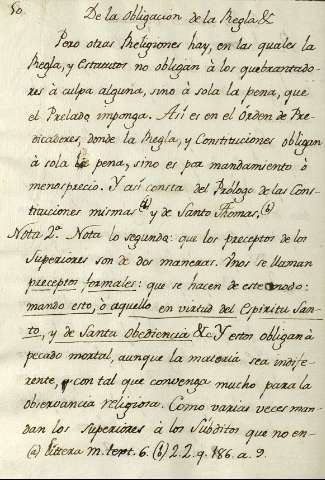 50.
De la Obligacion de la Regla &c
Pero otras Religiones hay, en las quales la
Regla, y Estatutos no obligan à los quebrantado-
res à culpa alguna, sino à sola la pena, que
el Prelado imponga. Así es en el Órden de Pre-
dicadores, donde la Regla, y Constituciones obligan
à sola la pena, sino es por mandamiento ò
menosprecio. Y así consta del Prólogo de las Cons-
tituciones mismas (a) y de Santo Thomas. (b)
Nota 2ª. Nota lo segundo: que los preceptos de los
Superiores son de dos maneras. Unos se llaman
preceptos formales: que se hacen de este modo:
mando esto, ò aquello en virtud del Espiritu San-
to, y de Santa Obediencia &c. Y estos obligan à
pecado mortal, aunque la materia sea indife-
rente, y con tal que convenga mucho para la
observancia religiosa. Como varias veces man-
dan los Superiores à los Subditos que no en-
(a) littera m. text. 6. (b) 2. 2. q. 186. a. 9.